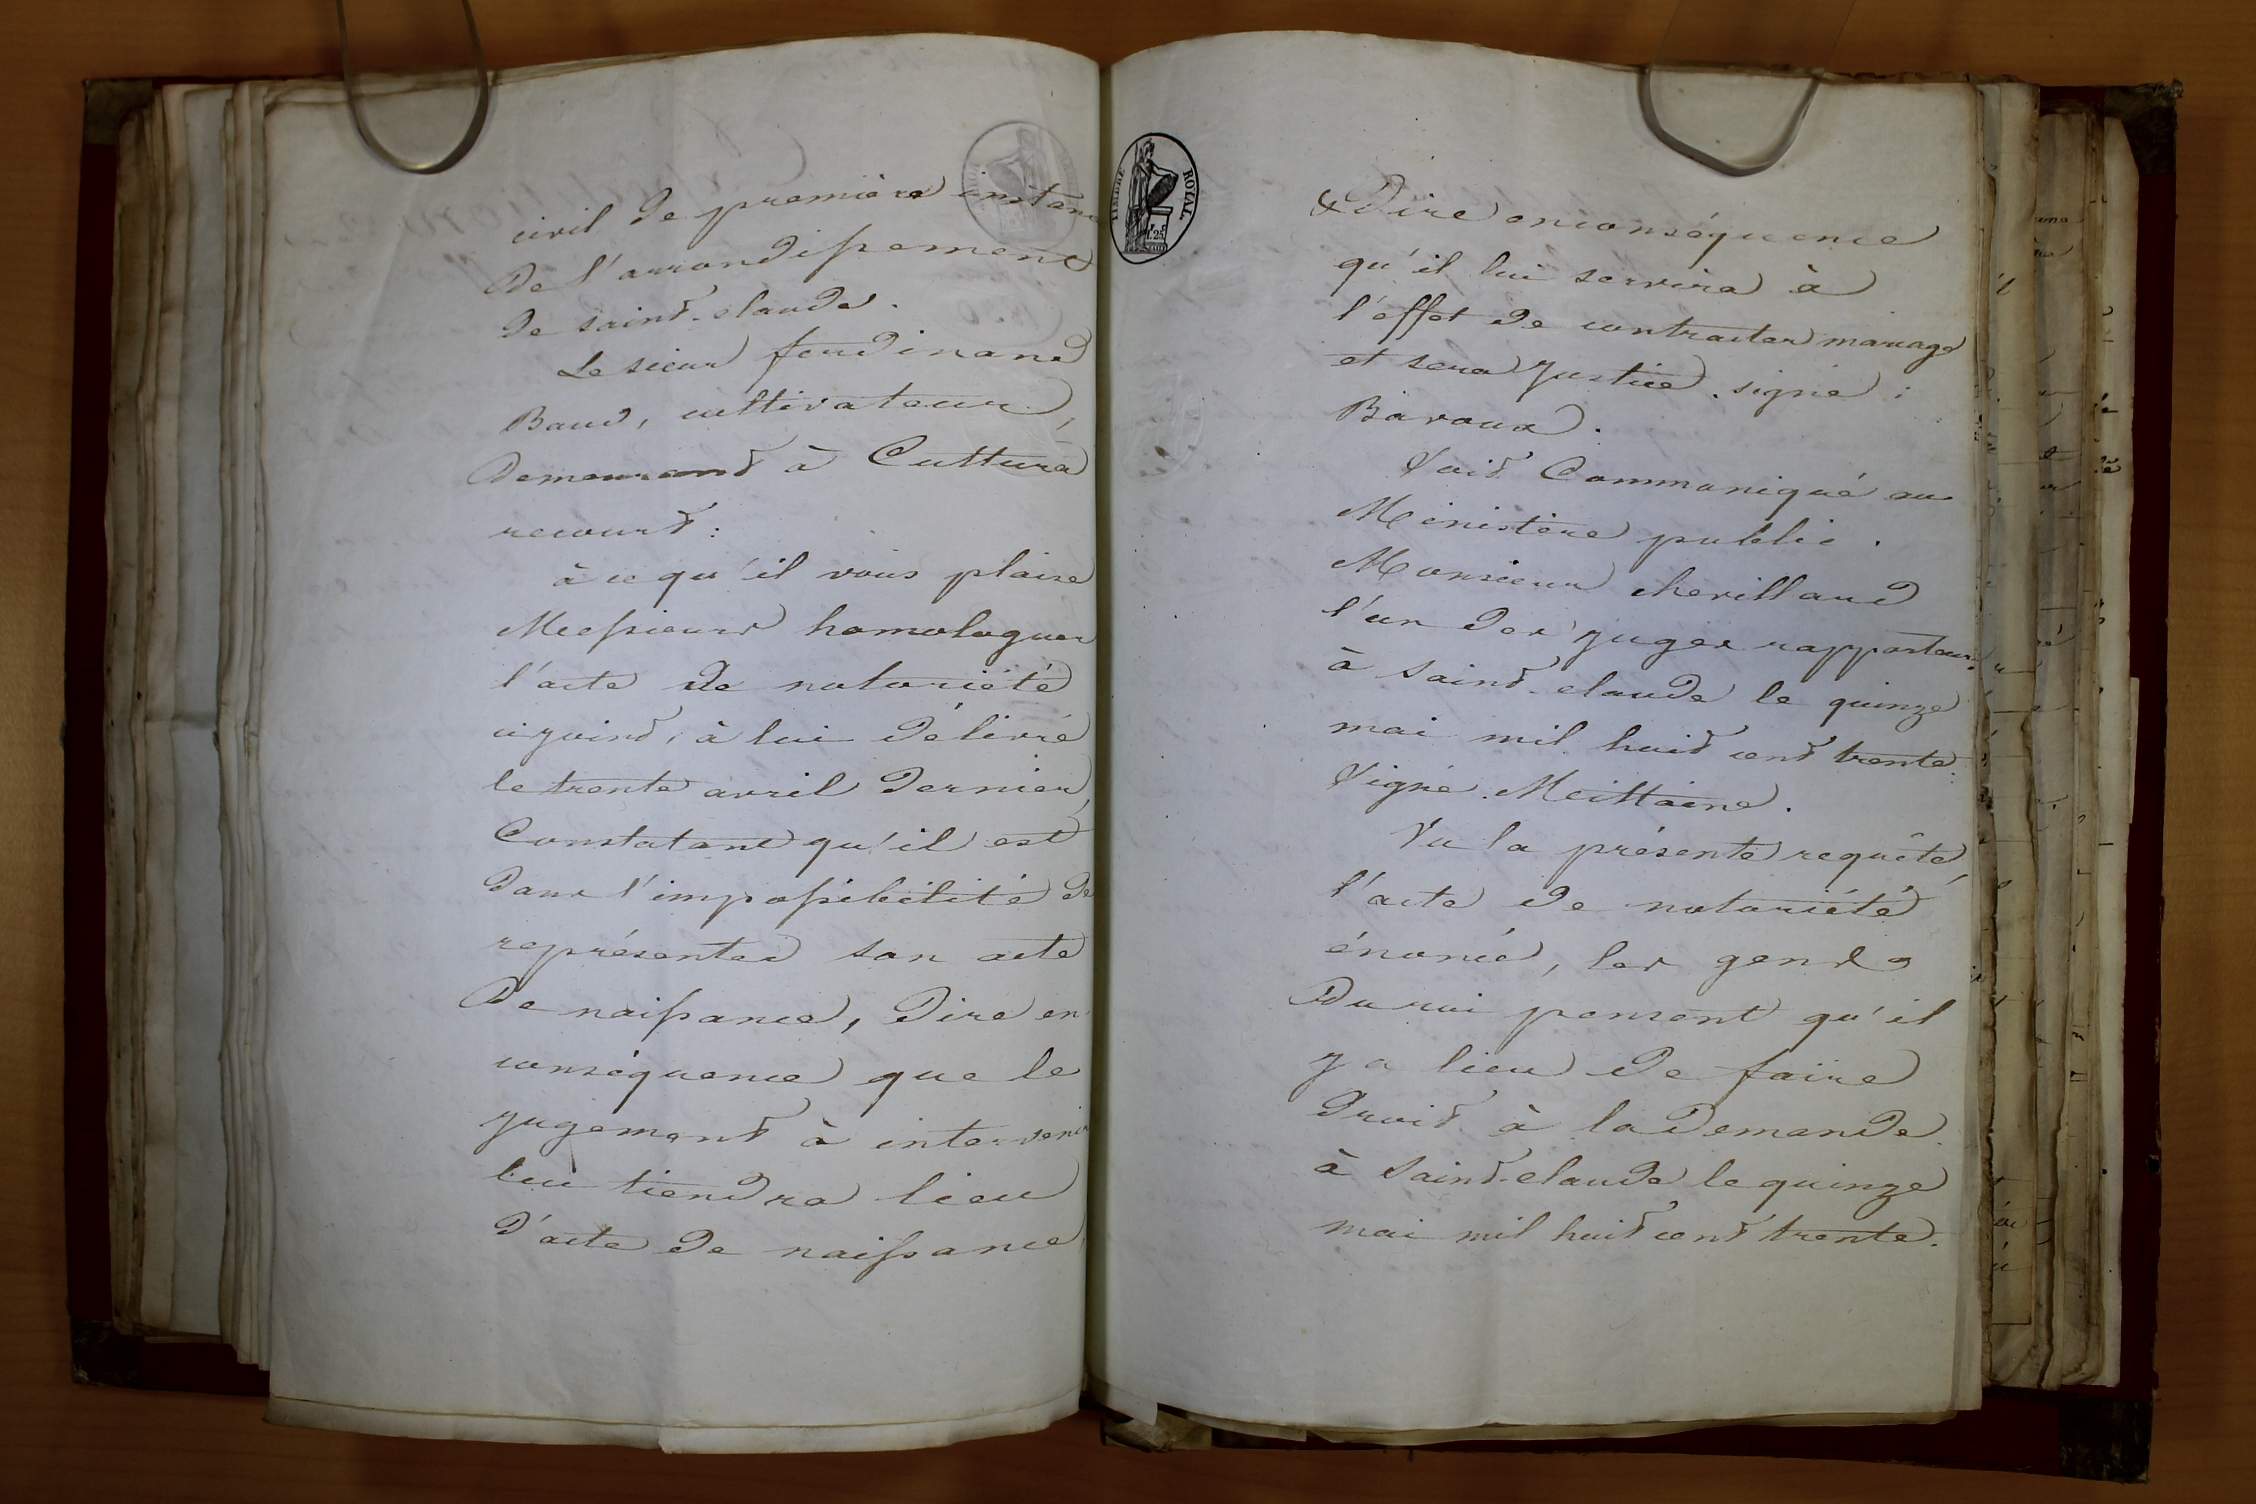 civil de première instance
de l'arrondissement
de saint-claude.
Le sieur ferdinand
Baud, cultivateur,
demeurant à Cuttura
recourt :
à ce qu'il vous plaise
Messieurs homologuer
l'acte de notoriété
ci joint, à lui délivré
le trente avril dernier,
Constatant qu'il est
dans l'impossibilité de
représenter son acte
de naissance, dire en
conséquence que le
jugement à intervenir
lui tiendra lieu
d'acte de naissance
TIMBRE ROYAL
1.25
& Dire en conséquence
qu'il lui servira à
l'effet de contracter mariage
et sera justice. signé :
Bavoux.
Soit Communiqué au
Ministère public.
Monsieur chevillard
l'un des juges rapporteur.
à saint-claude le quinze
mai mil huit cent trente.
Signé. Meittaine.
Vu la présente requête,
l'acte de notoriété
énoncé, les gens
du roi pensent qu'il
y a lieu de faire
droit à la demande.
à saint-claude le quinze
mai mil huit cent trente.